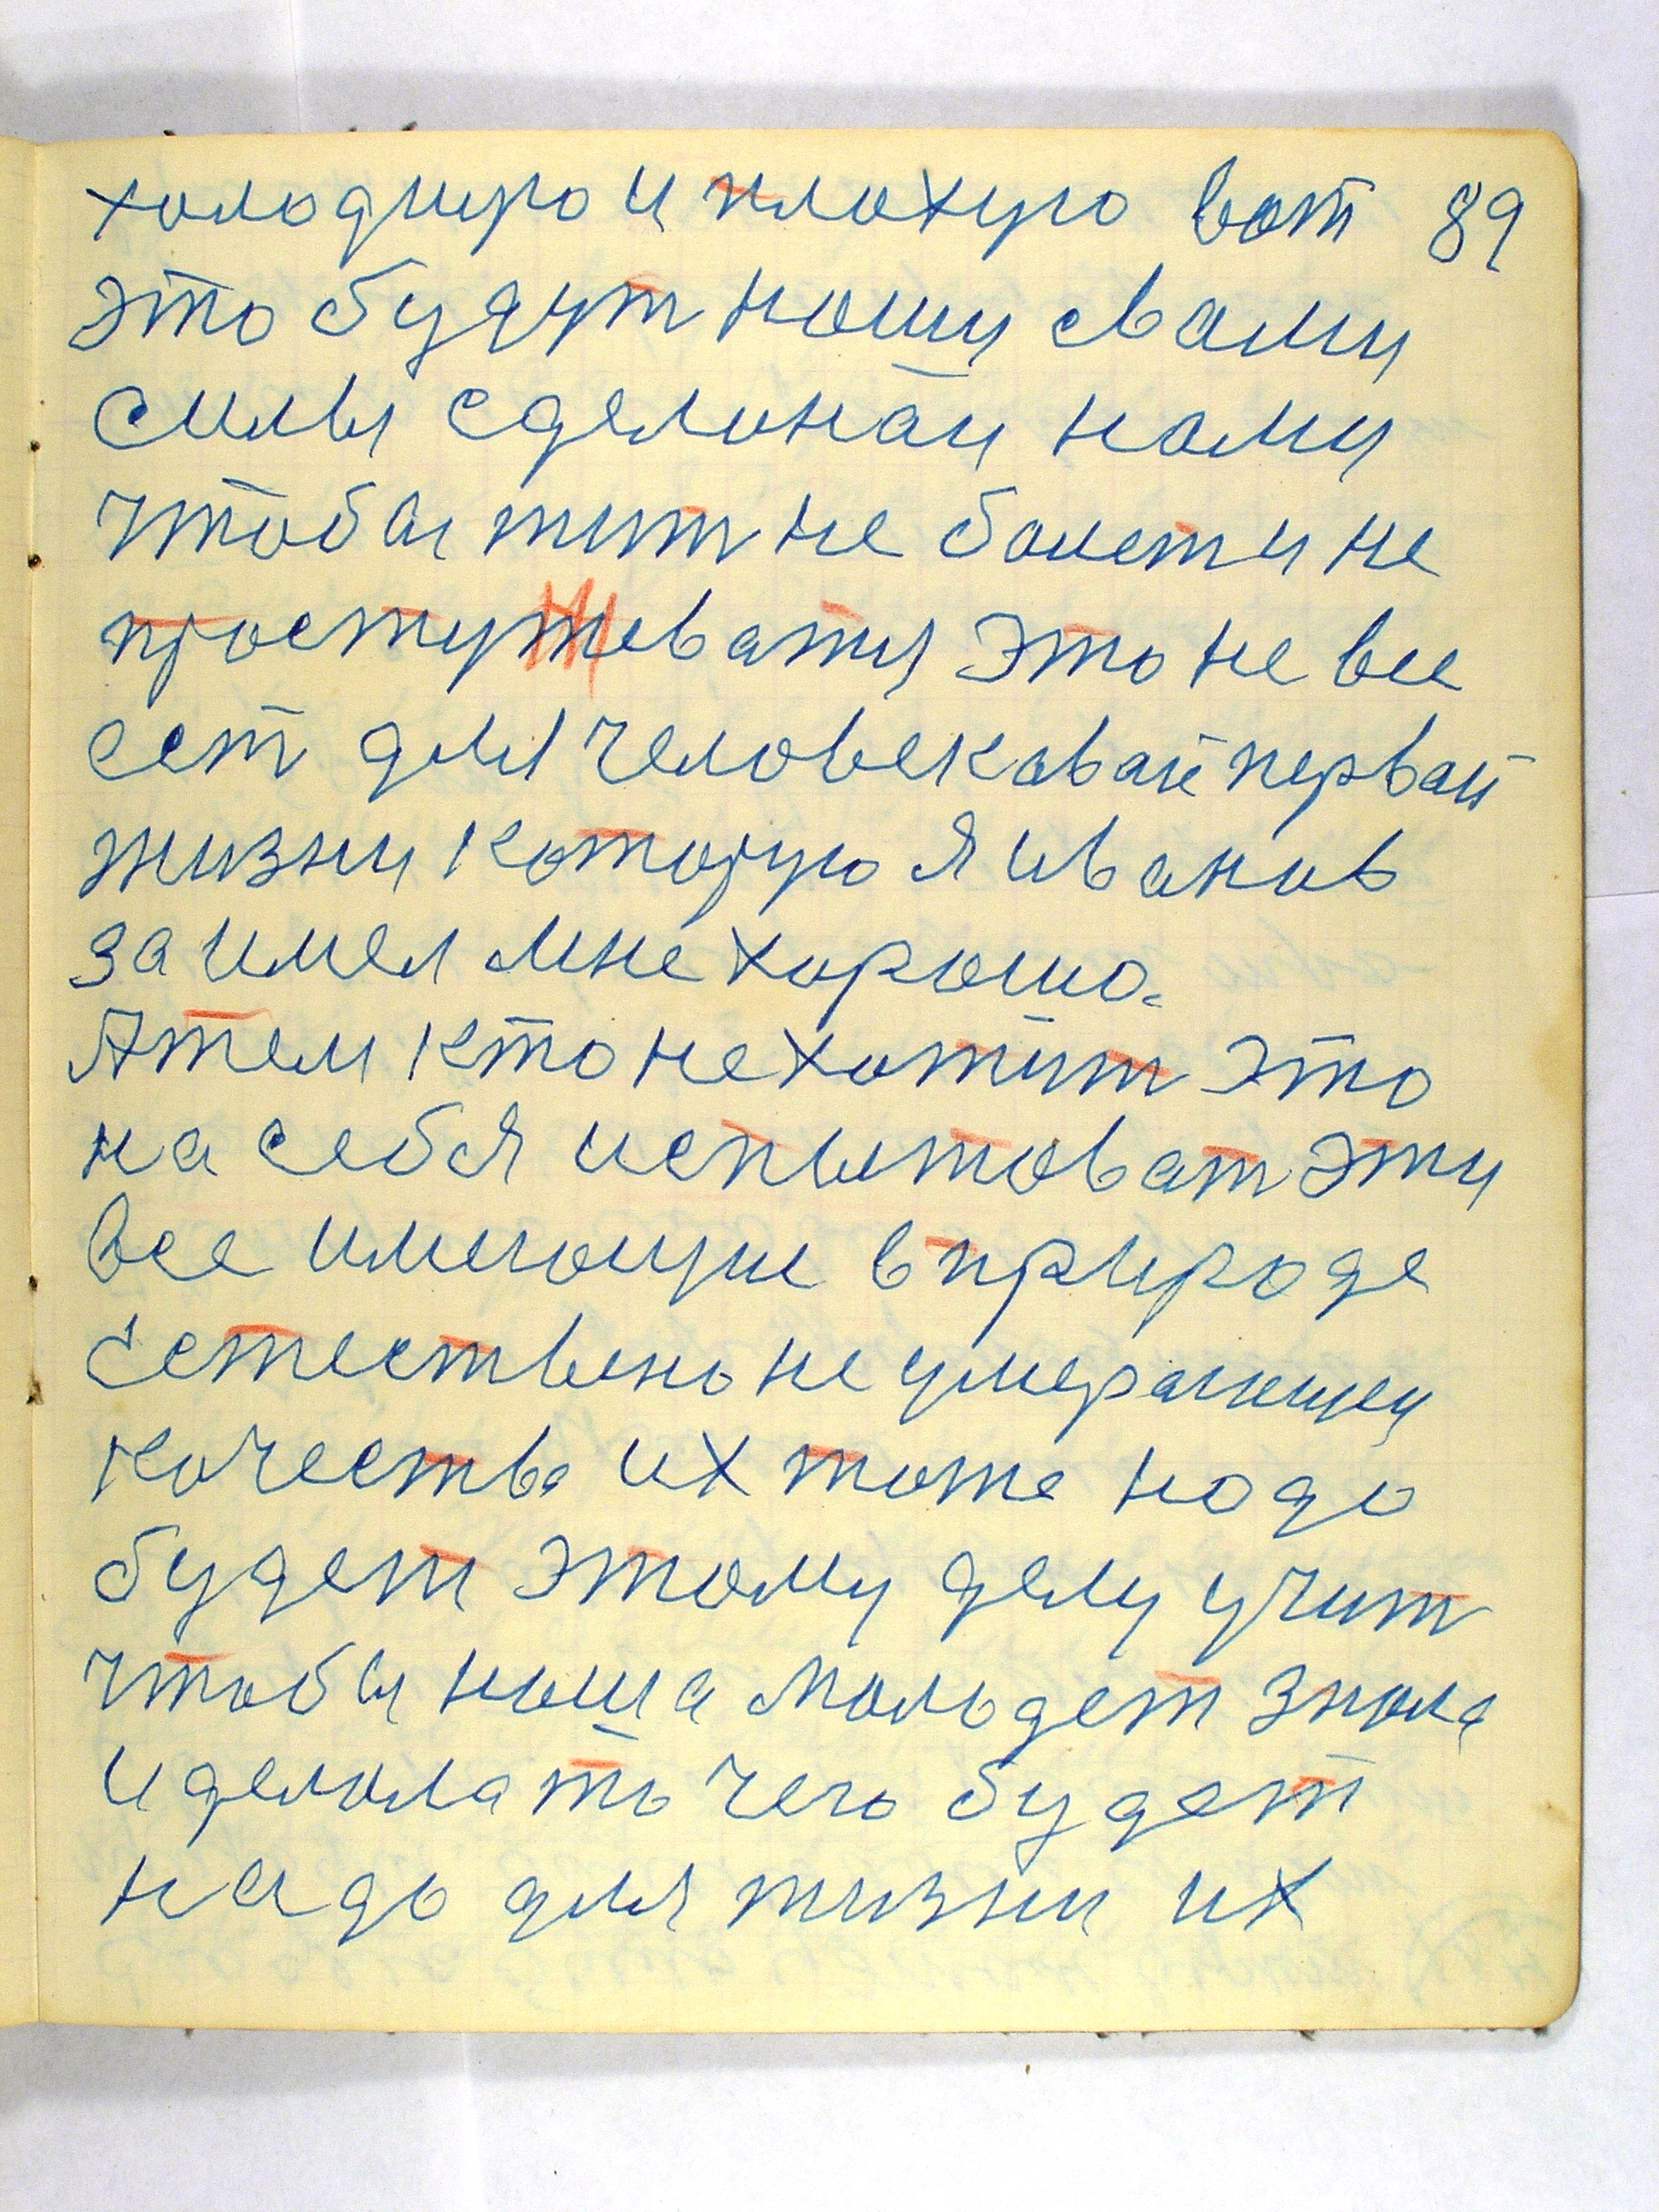 холодную и плохую вот 89
это будут наши свами
силы сделонаи нами
чтобы тит не болет и не
простужеватя это не все
ест для человековай первай
жизни которую я иванов
заимел мне хорошо.
А тем кто не хотит это
на себя испытоват эти
все имеющие в природе
естествено не умерающеи
качества их тоже надо
будет этому делу учит
чтобы наша молодет знала
и делола то чего будет
надо для жизни их